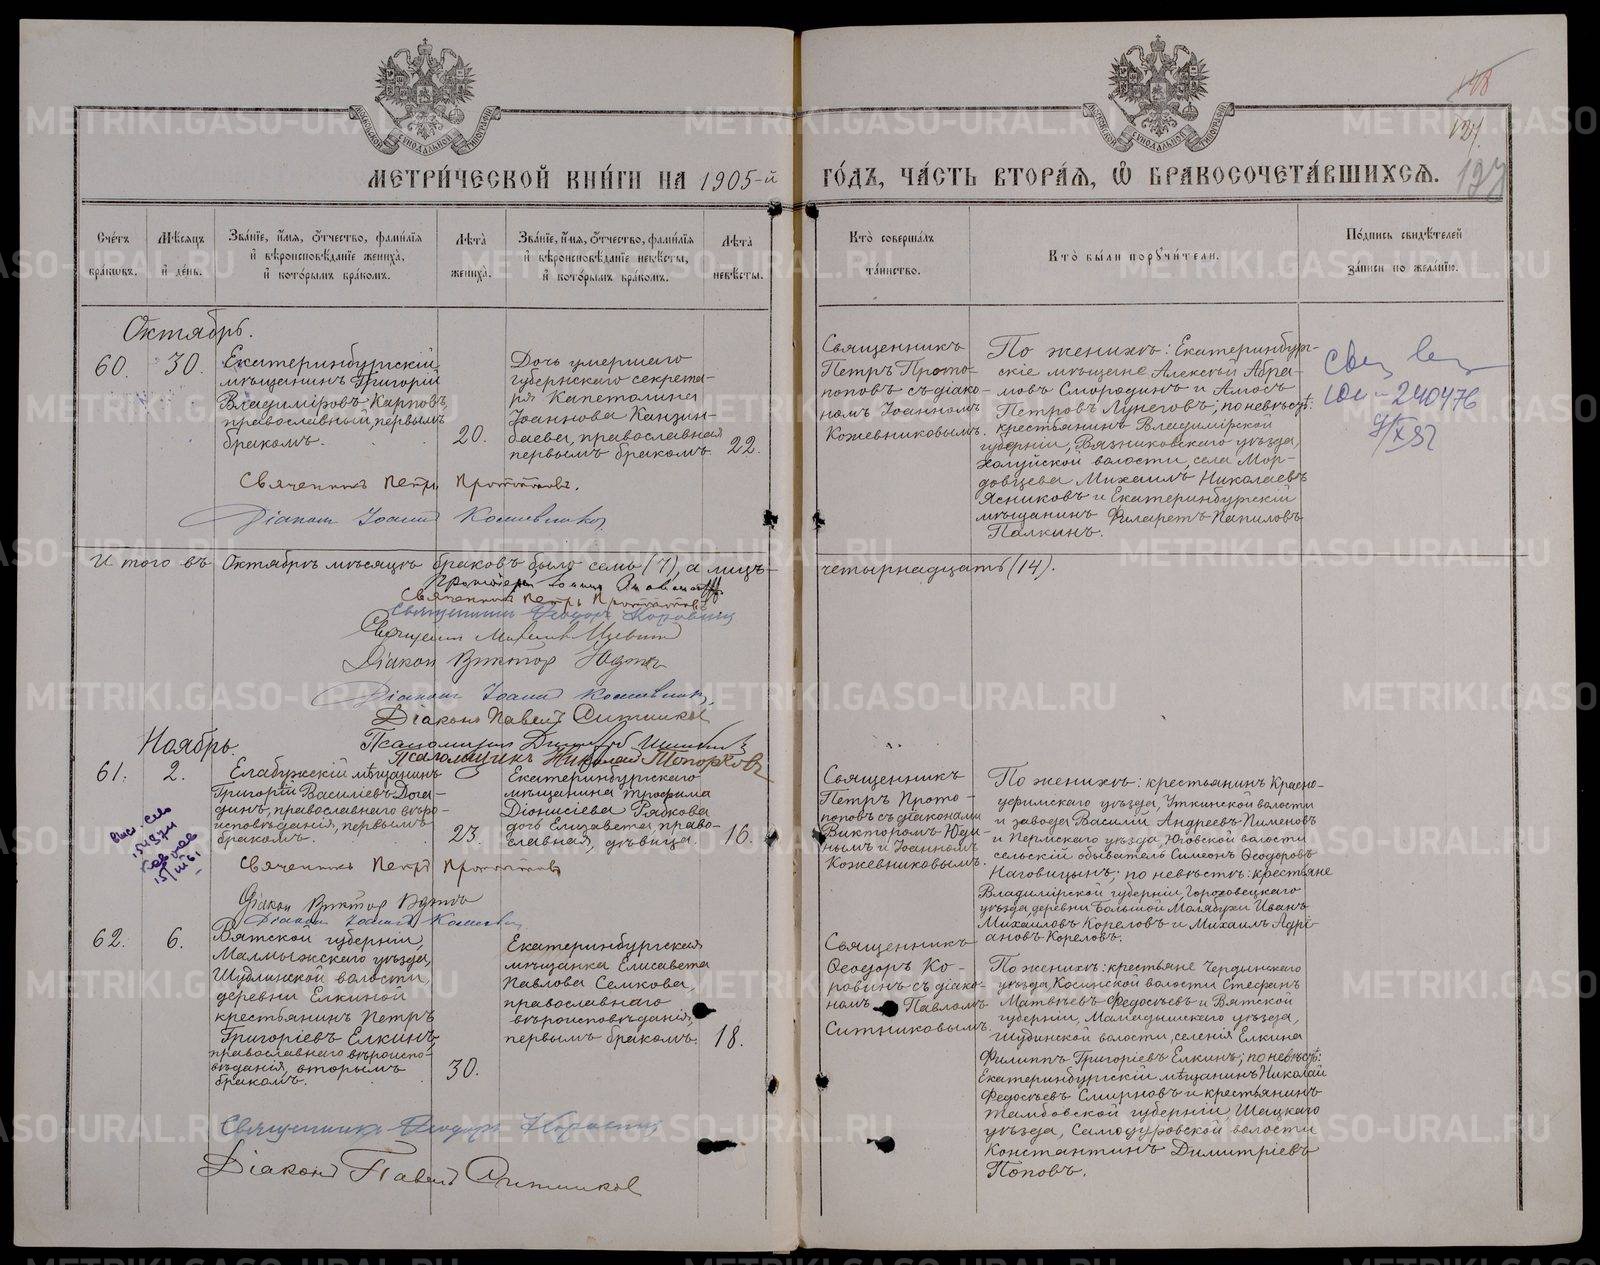 МЕТРИ́ЧЕСКОЙ КНИ́ГИ НА 1905-й ГО́ДЪ, ЧА́СТЬ ВТОРА́Я, Ѡ БРАКОСОЧЕТА́ВШИХСЯ.
127
Сче́тъ бра́кѡвъ.
Мѣ́сяцъ и҆ де́нь.
Зва́нїе, и҆́мя, ѻ҆́тчество, фами́лїя
и҆ вѣроисповѣ́данїе жениха̀,
и҆ кото́рымъ бра́комъ.
Лѣ́та жениха̀.
Зва́нїе, и҆́мя, ѻ҆́тчество, фами́лїя
и҆ вѣроисповѣ́данїе невѣ́сты,
и҆ кото́рымъ бра́комъ.
Лѣ́та невѣ́сты.
Кто̀ соверша́лъ
та́инство.
Кто̀ бы́ли поручи́тели.
По́дпись свидѣ́телей
за́писи по жела́нїю.
Октябрь.
60.
30.
Екатеринбургскій
мѣщанинъ Григорій
Владиміровъ Карповъ,
православный, первымъ
бракомъ.
20.
Дочь умершаго
губернскаго секрета-
ря Капетолина
Іоаннова Канзин-
баева, православная
первымъ бракомъ.
22.
Священникъ
Петръ Прото-
поповъ съ діако-
номъ Іоанномъ
Кожевниковымъ.
По женихѣ: Екатеринбург-
скіе мѣщане Алексѣй Абра-
мовъ Смородинъ и Амосъ
Петровъ Лунеговъ; по невѣстѣ:
крестьянинъ Владимірской
губерніи, Вязниковскаго уѣзда,
Холуйской волости, села Мор-
довцева Михаилъ Николаевъ
Ясниковъ и Екатеринбургскій
мѣщанинъ Филаретъ Папиловъ
Палкинъ.
240476
Священникъ Петръ Протопоповъ.
Діаконъ Іоаннъ Кожевниковъ
Итого въ Октябрѣ мѣсяцѣ браковъ было семь (7), а лицъ- четырнадцать (14).
Священникъ Петръ Протопоповъ
Священникъ Ѳеодоръ Коровинъ
Діаконъ Викторъ Юдинъ
Діаконъ Іоаннъ Кожевниковъ
Діаконъ Павелъ Ситниковъ
Псаломщикъ Николай Топорковъ
Ноябрь.
61.
2.
Елабужскій мѣщанинъ
Григорій Василіевъ Дога-
динъ, православнаго вѣро-
исповѣданія, первымъ
бракомъ.
23.
Екатеринбургскаго
мѣщанина Трофима
Діонисіева Рябкова
дочь Елизавета, право-
славная, дѣвица.
16.
Священникъ
Петръ Прото-
поповъ съ діаконами
Викторомъ Юди-
нымъ и Іоанномъ
Кожевниковымъ.
По женихѣ: крестьянинъ Красно-
уфимскаго уѣзда, Уткинской волости
и завода Василій Андреевъ Пименовъ
и Пермскаго уѣзда Юговской волости
сельскій обыватель Симеонъ Ѳеодоровъ
Наговицынъ; по невѣстѣ: крестьяне
Владимірской губерніи, Гороховецкаго
уѣзда, деревни Большой Малябухи Иванъ
Михаиловъ Кореловъ и Михаилъ Адрі-
ановъ Кореловъ.
Священникъ Петръ Протопоповъ
Діаконъ Викторъ Юдинъ
Діаконъ Іоаннъ Кожевниковъ
62.
6.
Вятской губерніи,
Малмыжскаго уѣзда,
Шудинской волости,
деревни Елкиной
крестьянинъ Петръ
Григоріевъ Елкинъ,
православнаго вѣроиспо-
вѣданія, вторымъ
бракомъ.
30.
Екатеринбургская
мѣщанка Елисавета
Павлова Семкова,
православнаго
вѣроисповѣданія,
первымъ бракомъ.
18.
Священникъ
Ѳеодоръ Ко-
ровинъ съ діако-
номъ Павломъ
Ситниковымъ.
По женихѣ: крестьяне Чердынскаго
уѣзда Косинской волости Стефанъ
Матвѣевъ Федосѣевъ и Вятской
губерніи, Мамадышскаго уѣзда,
Шудинской волости, селенія Елкина
Филиппъ Григоріевъ Елкинъ; по невѣстѣ:
Екатеринбургскій мѣщанинъ Николай
Федосѣевъ Смирновъ и крестьянинъ
Тамбовской губерніи, Шацкаго
уѣзда, Самодуровской волости
Константинъ Димитріевъ
Поповъ.
Священникъ Ѳеодоръ Коровинъ
Діаконъ Павелъ Ситниковъ
METRIKI.GASO-URAL.RU